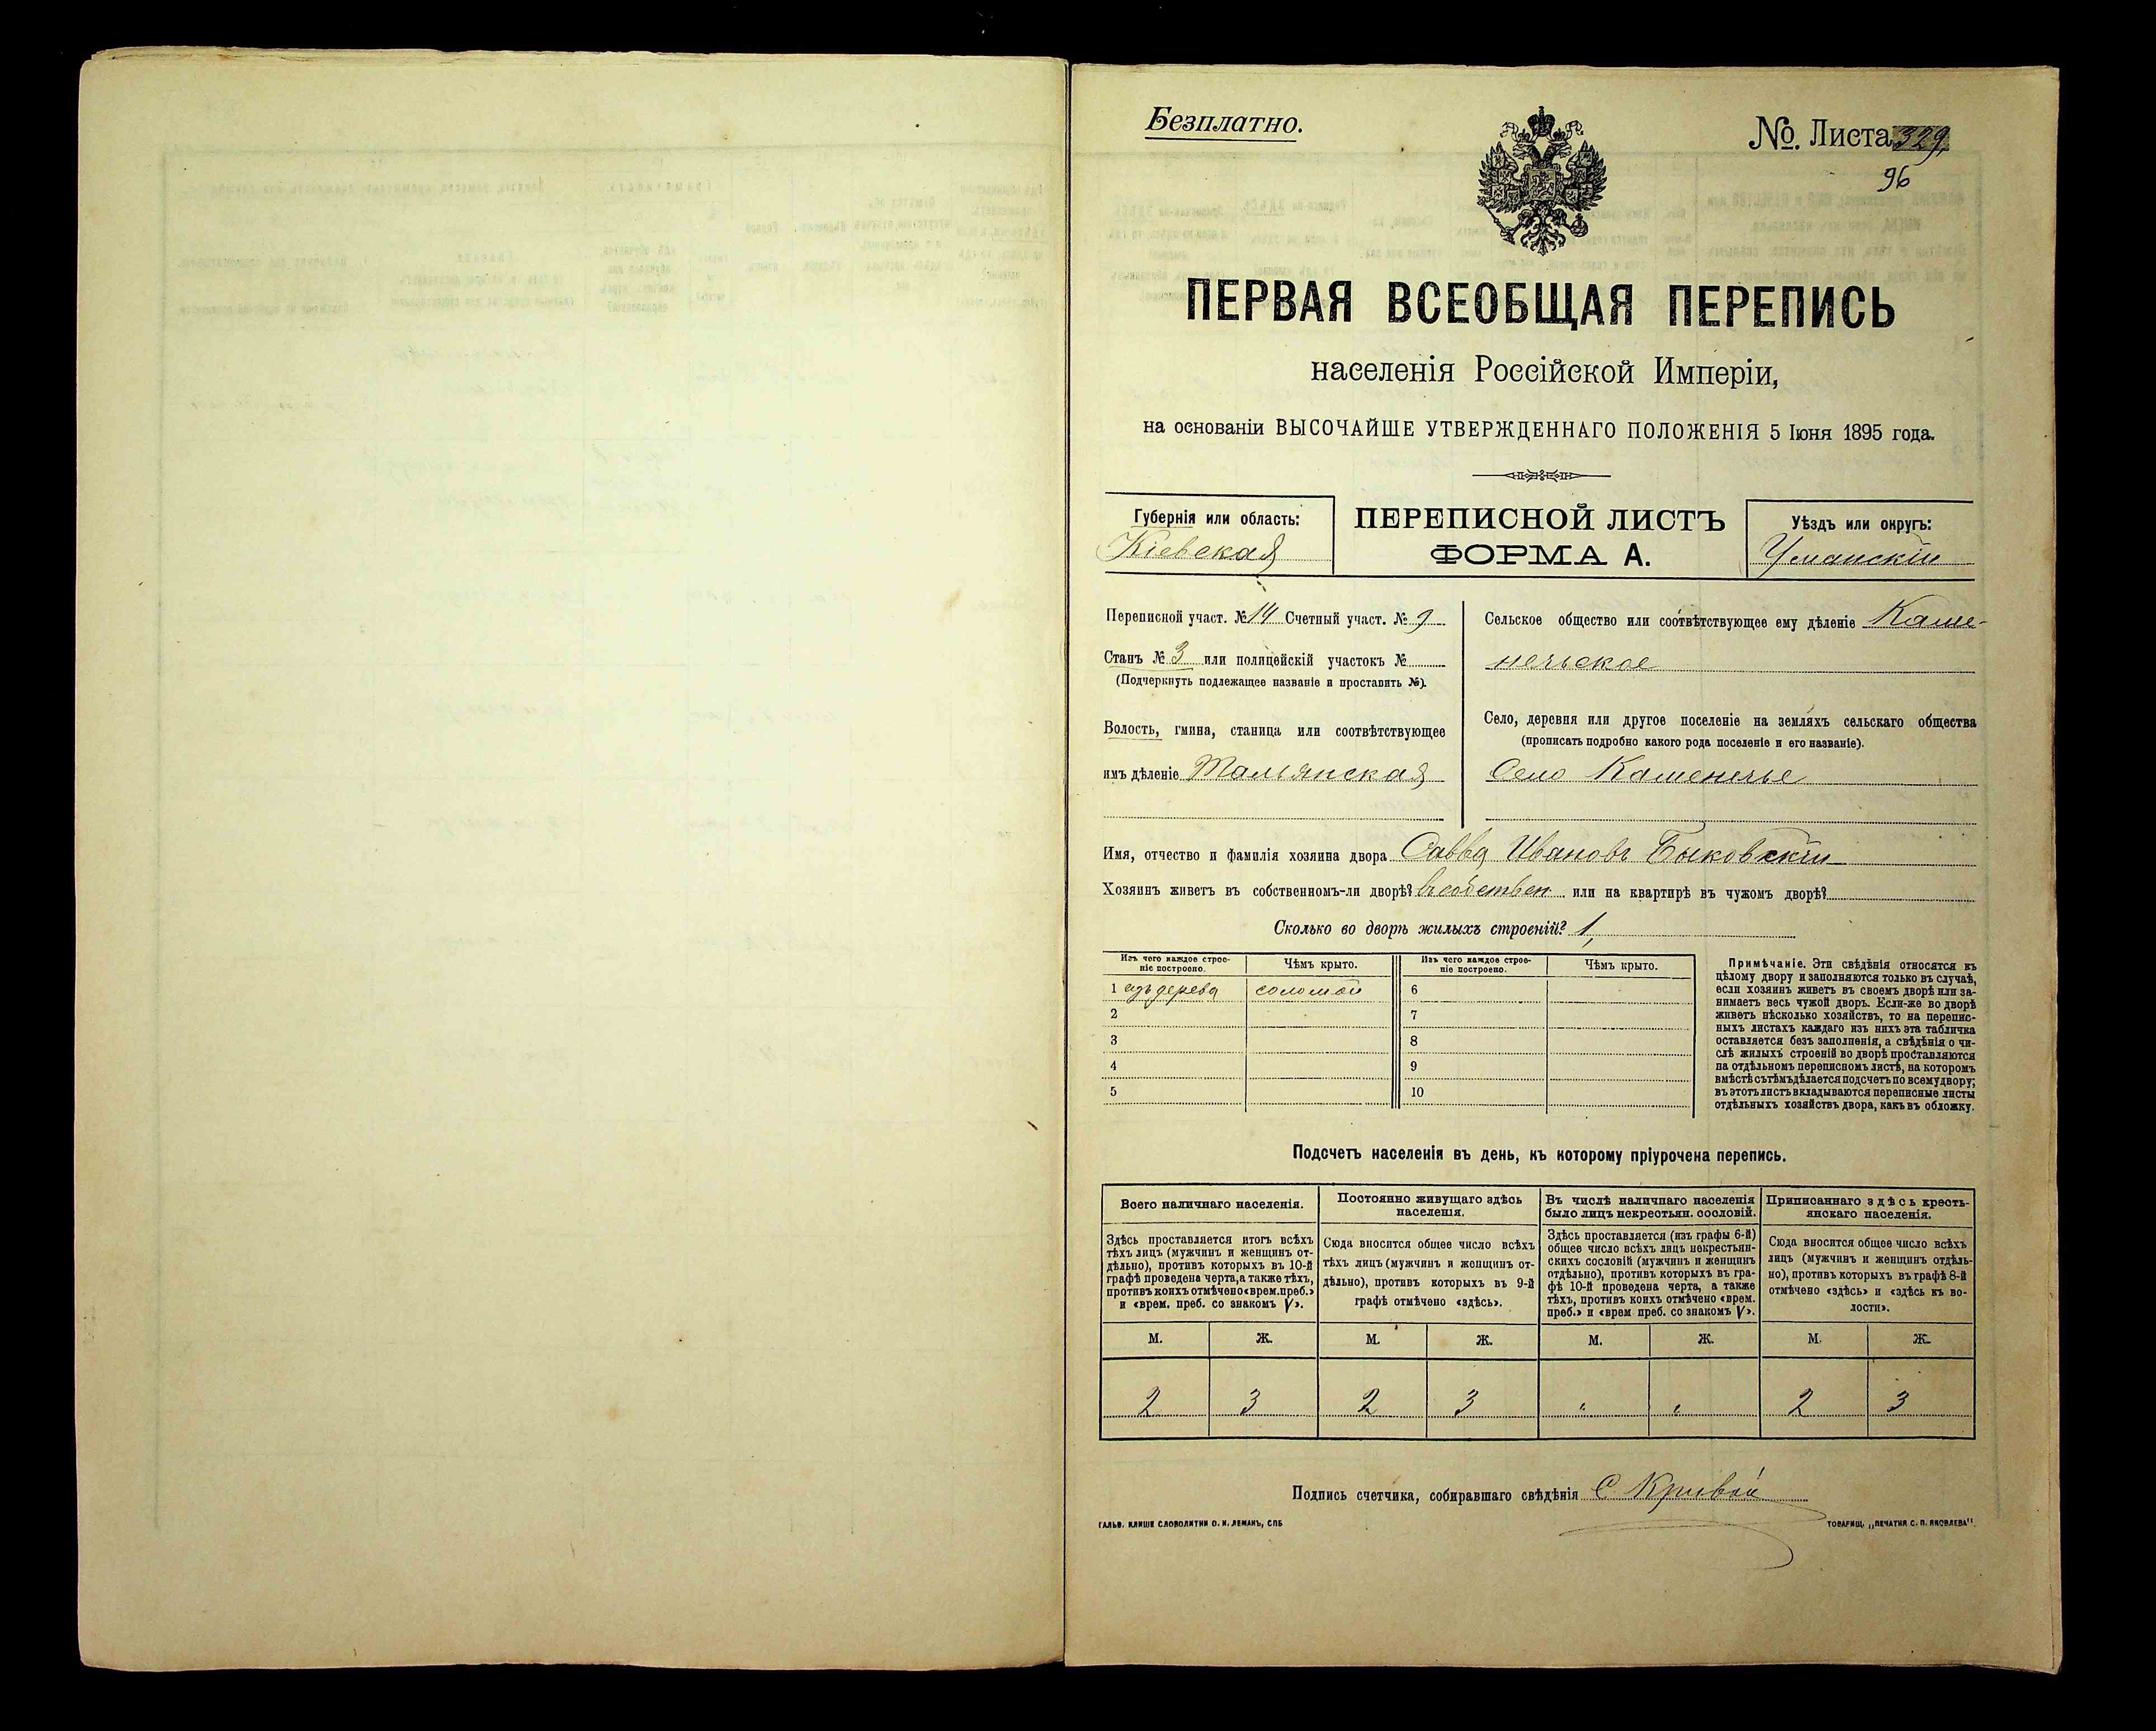 Безплатно.
№. Листа 329,
96
ПЕРВАЯ ВСЕОБЩАЯ ПЕРЕПИСЬ
населенія Россійской Имперіи,
на основаніи ВЫСОЧАЙШЕ УТВЕРЖДЕННАГО ПОЛОЖЕНІЯ 5 Іюня 1895 года.
Губернія или область:
Кіевская
ПЕРЕПИСНОЙ ЛИСТЪ
ФОРМА А.
Уѣздъ или округъ:
Уманскій
Переписной участ. № 14 Счетный участ. № 9
Станъ № 3 или полицейскій участокъ №
(Подчеркнуть подлежащее названіе и проставить №).
Волость, гмина, станица или соотвѣтствующее
имъ дѣленіе Тальянская
Сельское общество или соотвѣтствующее ему дѣленіе Каме-
нечьское
Село, деревня или другое поселеніе на земляхъ сельскаго общества
(прописать подробно какого рода поселеніе и его названіе).
Село Каменечье
Имя, отчество и фамилія хозяина двора Савва Ивановъ Быковскій
Хозяинъ живетъ въ собственномъ-ли дворѣ? въ собствен или на квартирѣ въ чужомъ дворѣ?
Сколько во дворѣ жилыхъ строеній? 1,
Изъ чего каждое строе-
ніе построено.
Чѣмъ крыто.
Изъ чего каждое строе-
ніе построено.
Чѣмъ крыто.
1 изъ дерева соломой 6
2 7
3 8
4 9
5 10
Примѣчаніе. Эти свѣдѣнія относятся къ
цѣлому двору и заполняются только въ случаѣ,
если хозяинъ живетъ въ своемъ дворѣ или за-
нимаетъ весь чужой дворъ. Если-же во дворѣ
живетъ нѣсколько хозяйствъ, то на перепис-
ныхъ листахъ каждаго изъ нихъ эта табличка
оставляется безъ заполненія, а свѣдѣнія о чи-
слѣ жилыхъ строеній во дворѣ проставляются
на отдѣльномъ переписномъ листѣ, на которомъ
вмѣстѣ съ тѣмъ дѣлается подсчетъ по всему двору;
въ этотъ листъ вкладываются переписные листы
отдѣльныхъ хозяйствъ двора, какъ въ обложку.
Подсчетъ населенія въ день, къ которому пріурочена перепись.
Всего наличнаго населенія.
Здѣсь проставляется итогъ всѣхъ
тѣхъ лицъ (мужчинъ и женщинъ от-
дѣльно), противъ которыхъ въ 10-й
графѣ проведена черта, а также тѣхъ,
противъ коихъ отмѣчено «врем. преб.»
и «врем. преб. со знакомъ V».
Постоянно живущаго здѣсь
населенія.
Сюда вносится общее число всѣхъ
тѣхъ лицъ (мужчинъ и женщинъ от-
дѣльно), противъ которыхъ въ 9-й
графѣ отмѣчено «здѣсь».
Въ числѣ наличнаго населенія
было лицъ некрестьян. сословій.
Здѣсь проставляется (изъ графы 6-й)
общее число всѣхъ лицъ некрестьян-
скихъ сословій (мужчинъ и женщинъ
отдѣльно), противъ которыхъ въ гра-
фѣ 10-й проведена черта, а также
тѣхъ, противъ коихъ отмѣчено «врем.
преб.» и «врем преб. со знакомъ V».
Приписаннаго здѣсь кресть-
янскаго населенія.
Сюда вносится общее число всѣхъ
лицъ (мужчинъ и женщинъ отдѣль-
но), противъ которыхъ въ графѣ 8-й
отмѣчено «здѣсь» и «здѣсь къ во-
лости».
М. Ж. М. Ж. М. Ж. М. Ж.
2 3 2 3 " " 2 3
Подпись счетчика, собиравшаго свѣдѣнія С Кривой
ГАЛЬВ. КЛИШЕ СЛОВОЛИТНИ О. И. ЛЕМАНЪ, СПБ
ТОВАРИЩ. „ПЕЧАТНЯ С. П. ЯКОВЛЕВА"